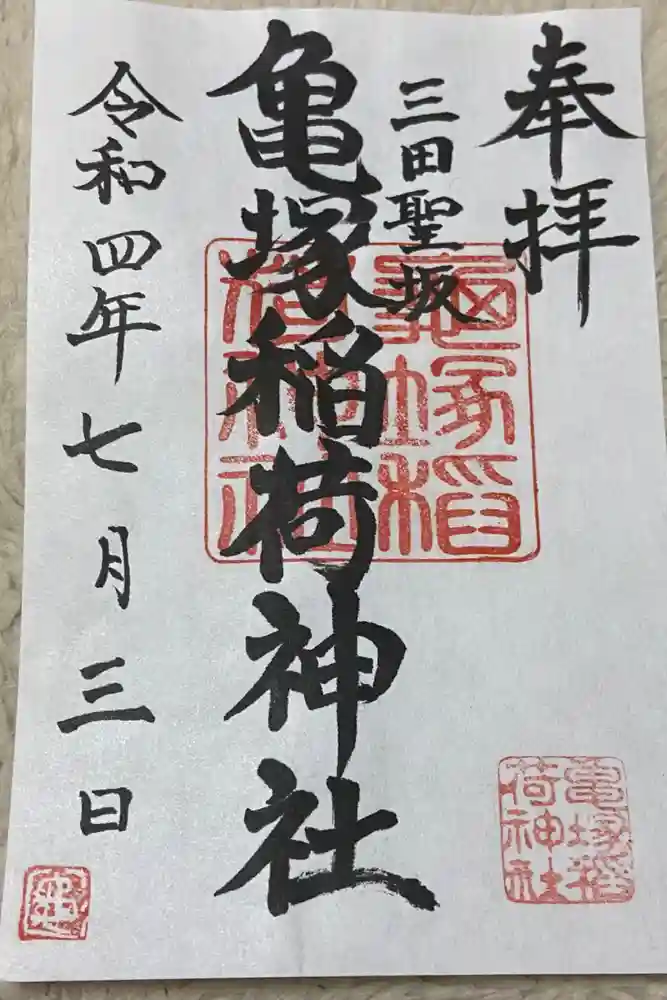 奉拝
三田聖坂
亀塚稲荷神社
令和四年七月三日
亀塚稲
荷神社